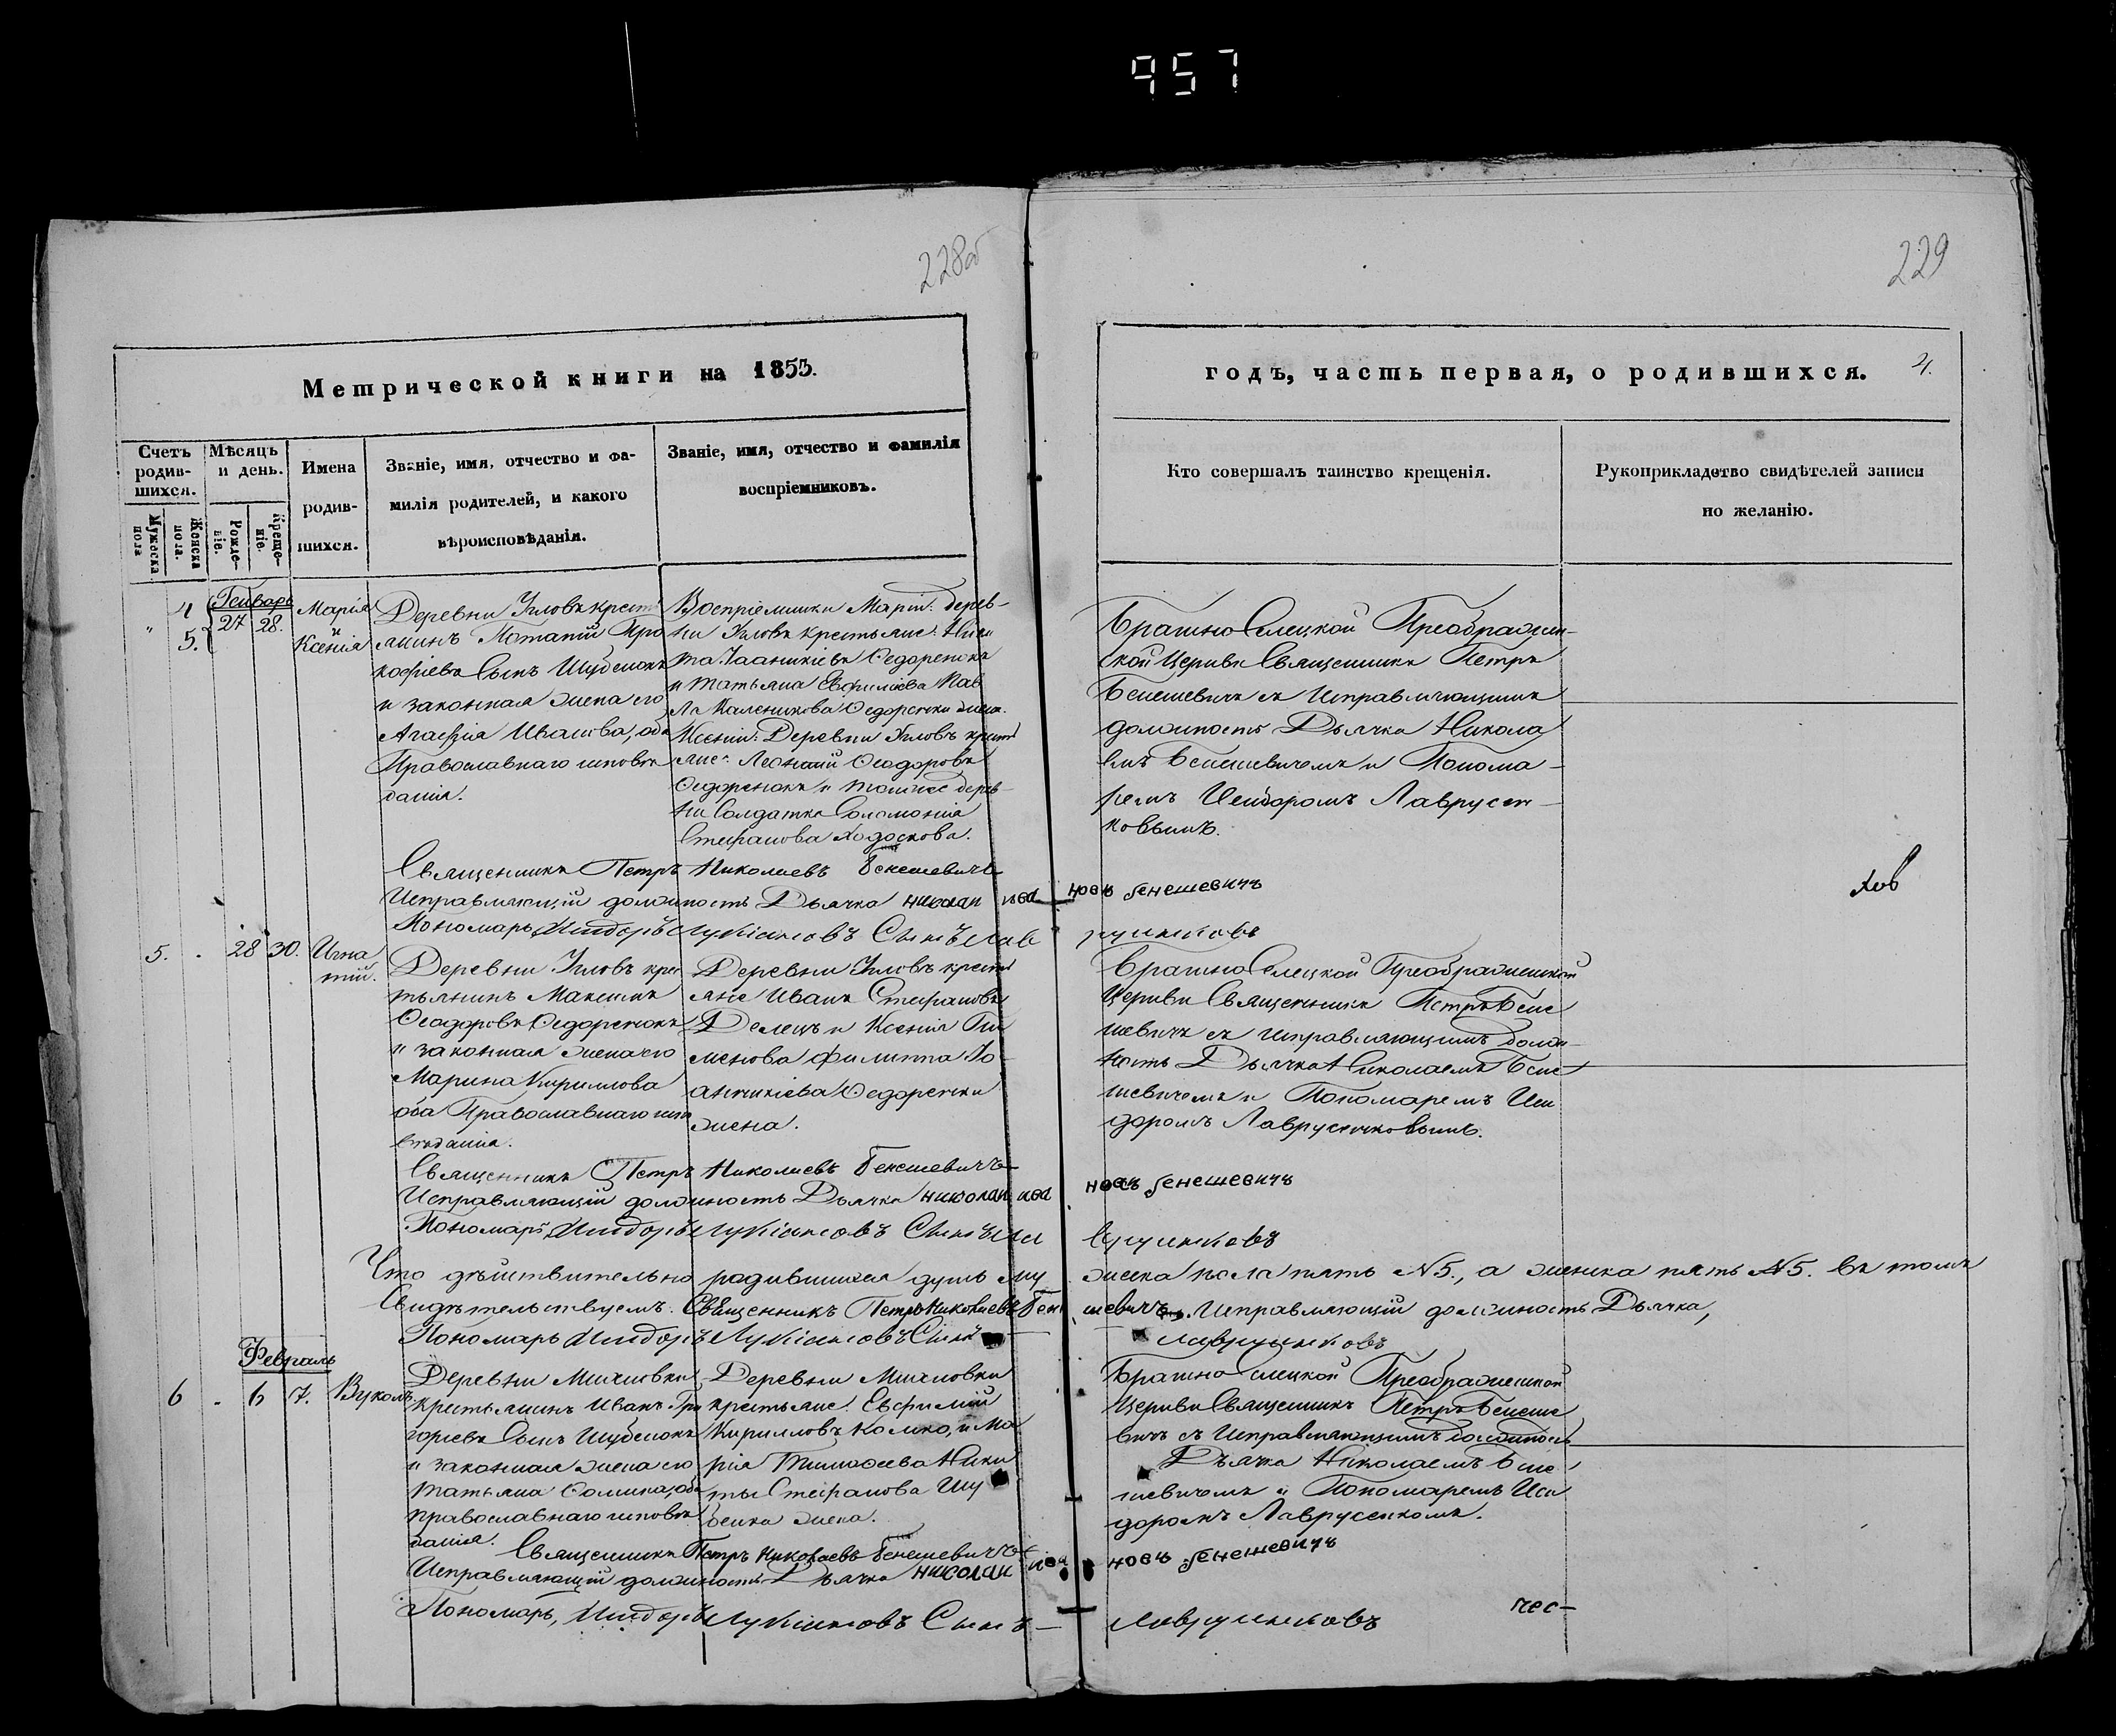 957
228об
229
Метрической книги на 1853.
годъ, часть первая, о родившихся.
4.
Счетъ родив-шихся.
Мѣсяцъ и день.
Имена родив-шихся.
Званіе, имя, отчество и фа-
милія родителей, и какого
вѣроисповѣданія.
Званіе, имя, отчество и фамилія
воспріемниковъ.
Кто совершалъ таинство крещенія.
Рукоприкладство свидѣтелей записи
по желанію.
Мужеска пола
Женска пола.
Рожде-ніе.
Креще-ніе.
Генварь
4
5.
27
28.
Марія
и
Ксенія
Деревни Уловъ крест
янинъ Потапій Про
кофіевъ сынъ Шубенокъ
и законная жена его
Агафія Иванова, оба
Православнаго исповѣ
данія.
Воспріемники Маріи: дерев-
ни Уловъ крестьяне: Ники
та Іааникіевъ Ѳедоренокъ
и Татьяна Евфиміева Пав
ла Каленикова Ѳедоренки жена.
Ксеніи: Деревни Уловъ крест
яне: Леонтій Ѳеодоровъ
Ѳедоренокъ и тойжес дерев-
ни Солдатка Соломонія
Стефанова Ходоскова.
БратноСелецкой Преображен-
ской Церкви Священникъ Петръ
Бенешевичъ съ Исправляющимъ
должность Дьячка Никола
емъ Бенешевичемъ и Понома-
ремъ Исидоромъ Лаврусен-
ковымъ.
Священникъ Петръ Николаевъ Бенешевичъ
Исправляющій должность Дьячка николай ива новъ бенешевичъ
Пономарь Исидоръ Лукіановъ Сынъ Лав русенковъ
Хов
5.
28
30.
Игна
тій.
Деревни Уловъ крес
тьянинъ Максимъ
Ѳеодоровъ Ѳедоренокъ
и законная жена его
Марина Кириллова
оба Православнаго испо
вѣданія.
Деревни Уловъ крест
яне Иванъ Стефановъ
Делецъ и Ксенія Пи
менова Филиппа Іо-
анникіева Ѳедоренки
жена.
БратноСелецкой Преображенской
Церкви Священникъ Петръ Бене
шевичъ съ исправляющимъ долж-
ность Дьячка Николаемъ Бене
шевичемъ и Пономаремъ Иси
доромъ Лаврусенковымъ.
Священникъ Петръ Николаевъ Бенешевичъ
Исправляющій должность Дьячка николай ива новъ бенешевичъ
Пономарь Исидоръ Лукіановъ Сынъ Ла врусенковъ
Что дѣйствительно родившихся душъ му жеска пола пять №5., а женска пять №5. въ томъ
Свидѣтельствуемъ. Священникъ Петръ Николаевъ Бене шевичъ. Исправляющій должность Дьячка,
Пономарь Исидоръ Лукіановъ Сынъ Лаврусенковъ
Февраль
6
6
7.
Вуколъ
Деревни Мишовки
крестьянинъ Иванъ Гри
горіевъ сынъ Шубенокъ
и законная жена его
Татьяна Сомина, оба
православнаго исповѣ
данія.
Деревни Мишовки
крестьяне: Евфимій
Кирилловъ Комко, и Ма
рія Тимоѳеева Ники
ты Стефанова Шу
бенка жена.
БратноСелецкой Преображенской
Церкви Священникъ Петръ Бенеше
вичъ съ Исправляющимъ должность
Дьячка Николаемъ Бене
шевичемъ и Пономаремъ Иси
доромъ Лаврусенкомъ.
Священникъ Петръ Николаевъ Бенешевичъ
Исправляющій должность Дьячка николай ива новъ бенешевичъ
Пономарь, Исидоръ Лукіановъ Сынъ Лаврусенковъ
чес-